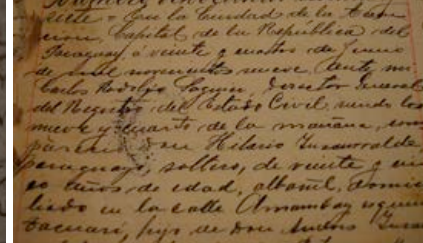 siete = En la Ciudad de la Asun
cion, Capital de la Republica del
Paraguay, á veinte y cuatro de Junio
de mil novecientos nueve, Ante mi
Carlos Rodolfo Director General
del Registro del Estado Civil, siendo las
nueve y cuarto de la mañana, com
pareció Don Hilario Insaurralde,
paraguayo, soltero, de veinte y cin
co años de edad, albañil, domici
liado en la calle Amambay esquina
Tacuarí, hijo de Don